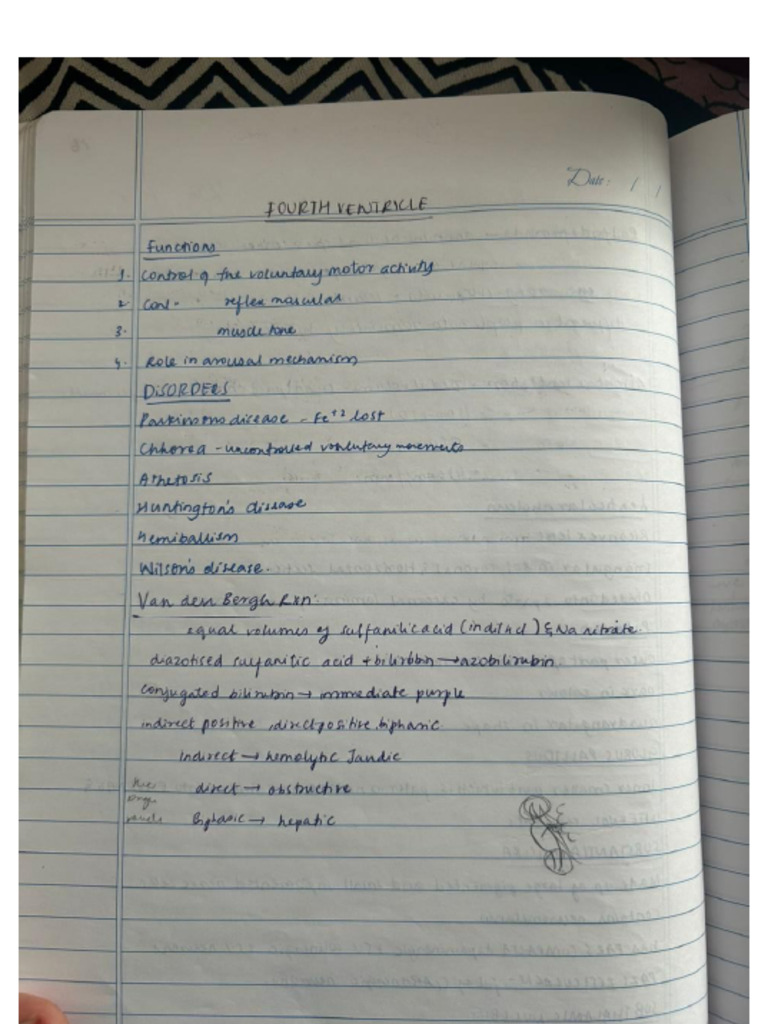 Date: / /
FOURTH VENTRICLE
Functions
1. Control of the voluntary motor activity
2. Conl - " " reflex muscular
3. muscle tone
4. Role in arousal mechanism
DISORDERS
Parkinsons disease - Fe+2 lost
Chhorea - uncontrolled voluntary movements
Athetosis
Huntington's disease
hemiballism
Wilson's disease.
Van den Bergh Rxn:
equal volumes of sulfanilic acid (in dil Hcl) & Na nitrate.
diazotised sulfanilic acid + bilirubin → azobilirubin
conjugated bilirubin → immediate purple
indirect positive, direct positive, biphasic
Indirect → hemolytic Jandic
direct → obstructive
Biphasic → hepatic